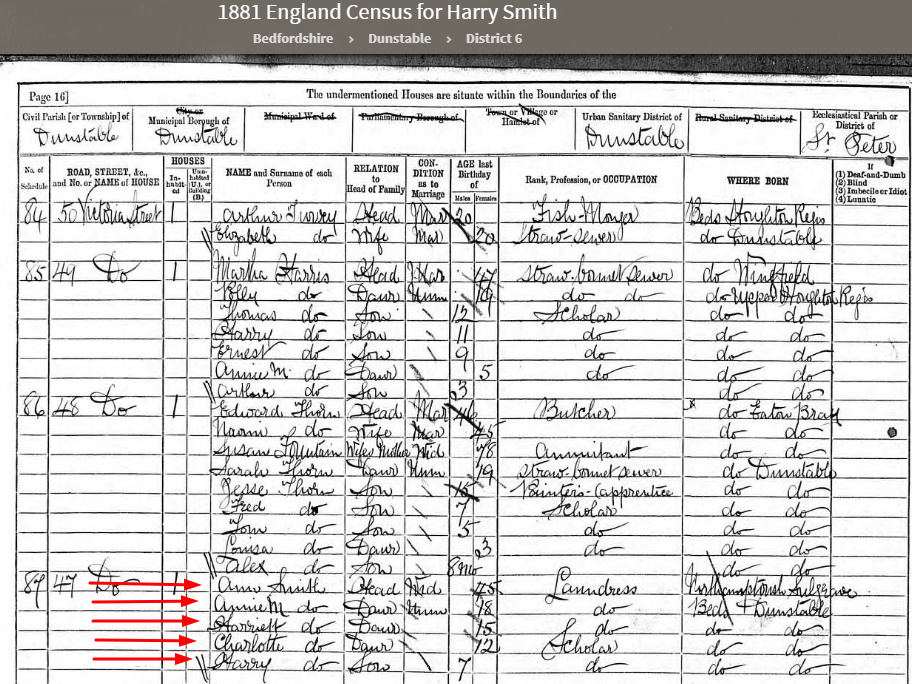 1881 England Census for Harry Smith
Bedfordshire › Dunstable › District 6
Page 16] The undermentioned Houses are situate within the Boundaries of the
Civil Parish [or Township] of City or Municipal Borough of Municipal Ward of Parliamentary Borough of Town or Village or Hamlet of Urban Sanitary District of Rural Sanitary District of Ecclesiastical Parish or District of
Dunstable Dunstable Dunstable St. Peter
No. of Schedule ROAD, STREET, &c., and No. or NAME of HOUSE HOUSES Inhabited Uninhabited (U.), or Building (B.) NAME and Surname of each Person RELATION to Head of Family CONDITION as to Marriage AGE last Birthday of Males Females Rank, Profession, or OCCUPATION WHERE BORN If (1) Deaf-and-Dumb (2) Blind (3) Imbecile or Idiot (4) Lunatic
84 50 Victoria Street 1 Arthur Turvey Head Mar 20 Fish-Monger Beds Houghton Regis
Elizabeth do Wife Mar 20 Straw-sewer do Dunstable
85 49 Do 1 Martha Harris Head Mar 47 Straw-bonnet sewer do Wingfield
Polly do Daur Unm 19 do do do Upper Houghton Regis
Thomas do Son 12 Scholar do do
Harry do Son 11 do do do
Ernest do Son 9 do do do
Annie M do Daur 5 do do do
Arthur do Son 3 do do
86 48 Do 1 Edward Thorn Head Mar 46 Butcher do Eaton Bray
Naomi do Wife Mar 45 do do
Susan Fountain Wifes Mother Wid 78 Annuitant do do
Sarah Thorn Daur Unm 19 Straw-bonnet sewer do Dunstable
Jesse Thorn Son 15 Printers-apprentice do do
Fred do Son 7 Scholar do do
Tom do Son 5 do do do
Louisa do Daur 3 do do do
Alex do Son 8mo do do
87 47 Do 1 Ann Smith Head Wid 45 Laundress Northamptonsh Sulgrave
Annie M do Daur Unm 18 do Beds Dunstable
Harriett do Daur 15 do do do
Charlotte do Daur 12 Scholar do do
Harry do Son 7 do do do